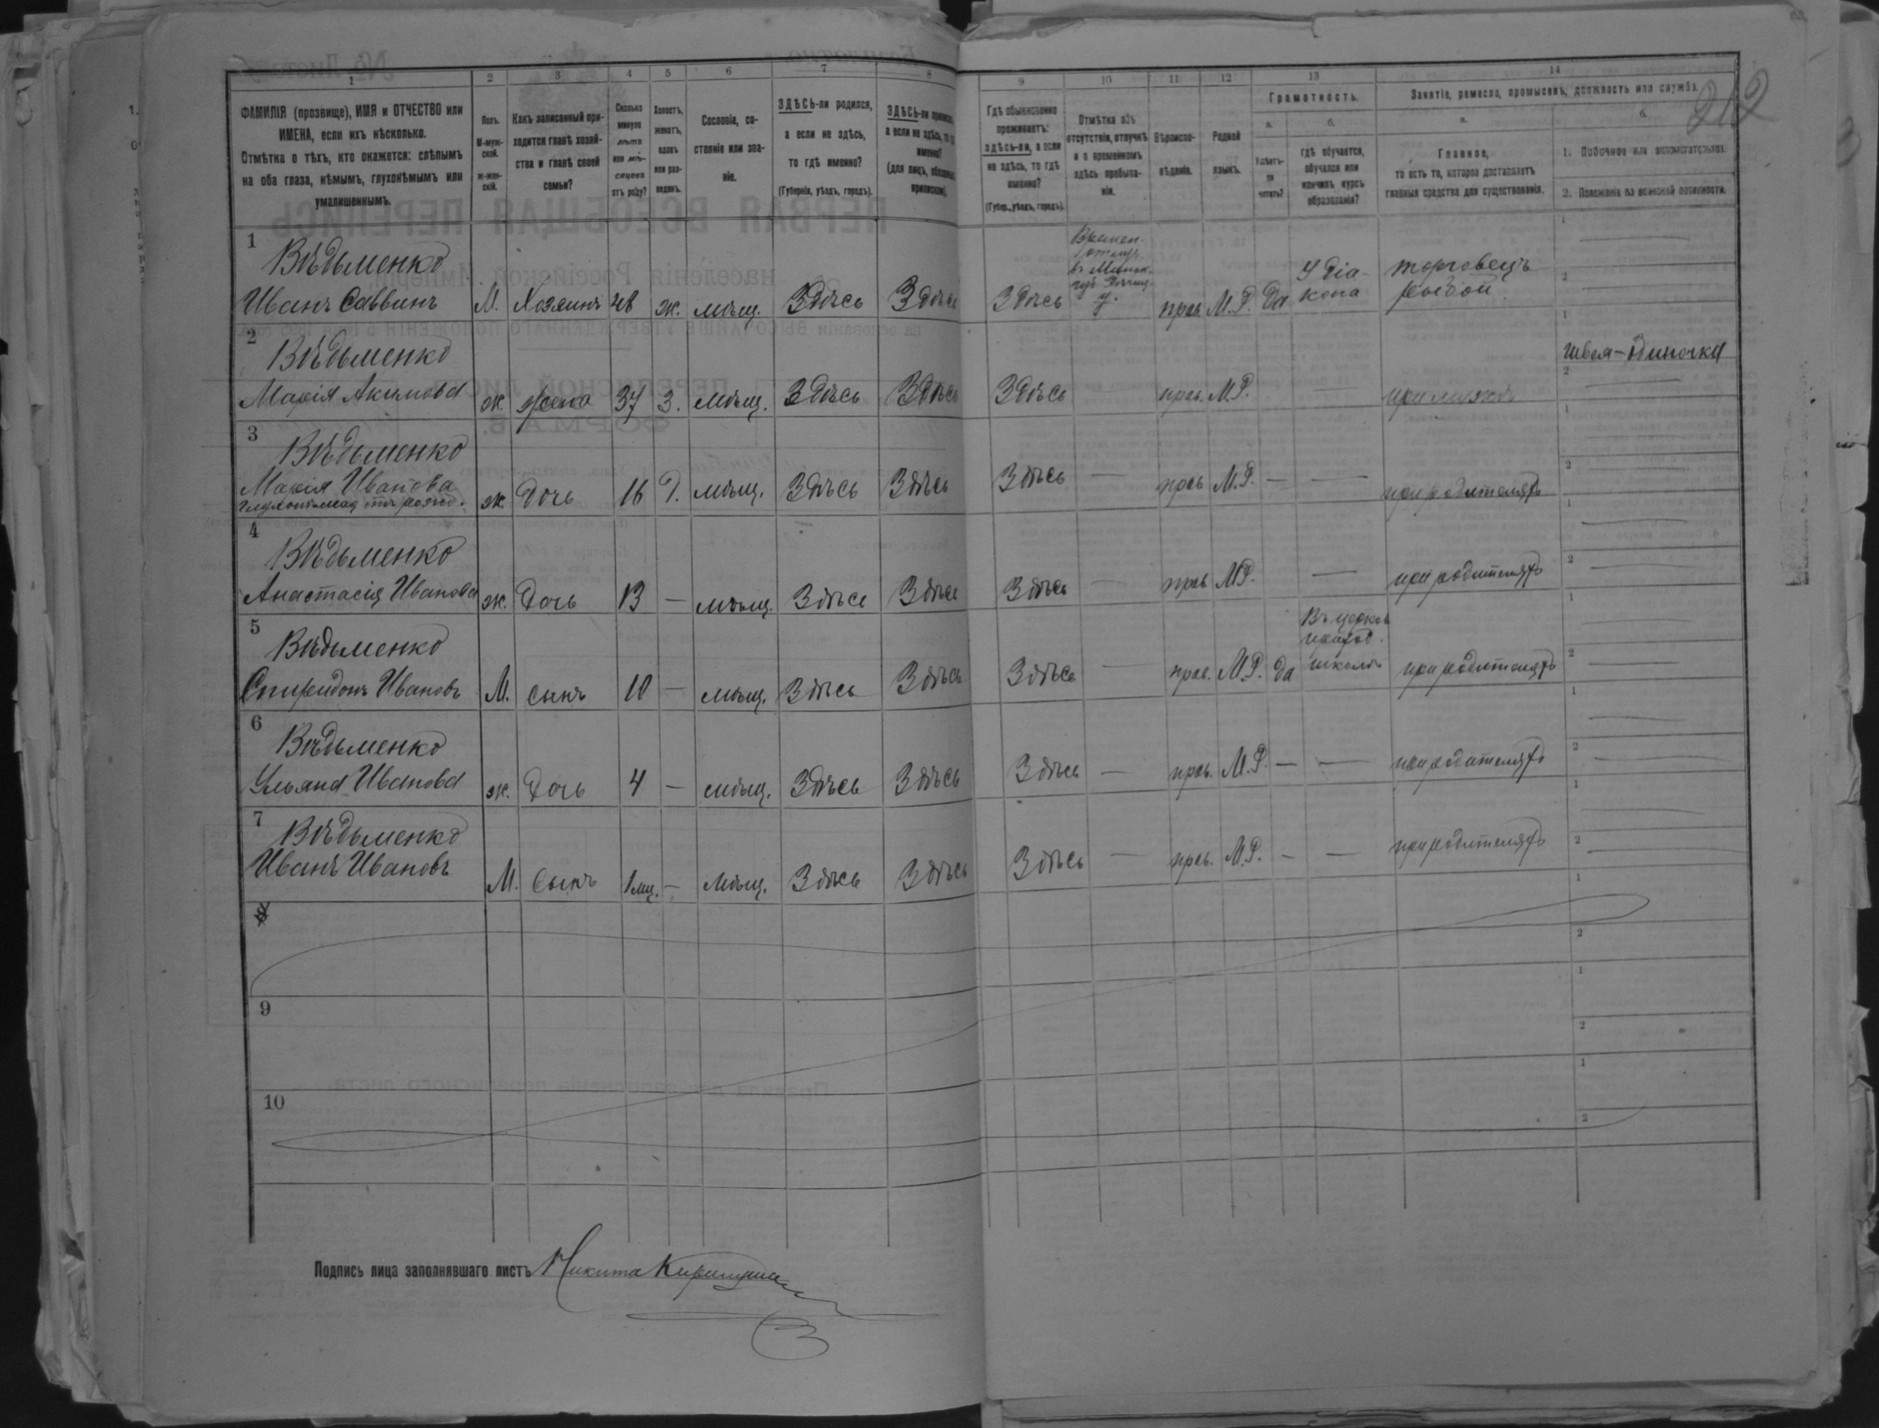 1
2
3
4
5
6
7
8
9
10
11
12
13
14
ФАМИЛІЯ (прозвище), ИМЯ и ОТЧЕСТВО или
ИМЕНА, если ихъ нѣсколько.
Отмѣтка о тѣхъ, кто окажется: слѣпымъ
на оба глаза, нѣмымъ, глухонѣмымъ или
умалишеннымъ.
Полъ.
М-муж-
ской.
ж-жен-
скій.
Какъ записанный при-
ходится главѣ хозяй-
ства и главѣ своей
семьи?
Сколько
минуло
лѣтъ
или мѣ-
сяцевъ
отъ роду?
Холостъ,
женатъ,
вдовъ
или раз-
веденъ.
Сословіе, со-
стояніе или зва-
ніе.
ЗДѢСЬ-ли родился,
а если не здѣсь,
то гдѣ именно?
(Губернія, уѣздъ, городъ).
ЗДѢСЬ-ли
а если не здѣсь, то
именно?
(для лицъ,
Гдѣ обыкновенно
проживаетъ:
здѣсь-ли, а если
не здѣсь, то гдѣ
именно?
(Губер., уѣздъ, городъ).
Отмѣтка объ
отсутствіи, отлучкѣ
и о временномъ
здѣсь пребыва-
ніи.
Вѣроиспо-
вѣданіе.
Родной
языкъ.
Грамотность.
а.
б.
Умѣетъ-
ли
читать?
гдѣ обучается,
обучался или
кончилъ курсъ
образованія?
Занятіе, ремесло, промыселъ, должность или служба.
212
а.
б.
Главное,
то есть то, которое доставляетъ
главныя средства для существованія.
1. Побочное или вспомогательное.
2. Положеніе по воинской повинности.
1
Вѣдьменко
Иванъ Саввинъ М. Хозяинъ 48 ж. мѣщ. Здѣсь Здѣсь Здѣсь
Времен.
въ Минск.
губ.
у.
прав. М.Р. Да
У діа-
кона
торговецъ
рыбой
2
Вѣдьменко
Марія Акимова ж. жена 37 З. мѣщ. Здѣсь Здѣсь Здѣсь прав. М.Р. — при мужѣ
швея-одиночка
3
Вѣдьменко
Марія Иванова
глухонѣмая отъ рожд. ж. Дочь 16 Д. мѣщ. Здѣсь Здѣсь Здѣсь — прав. М.Р. — — при родителяхъ
4
Вѣдьменко
Анастасія Иванова ж. Дочь 13 — мѣщ. Здѣсь Здѣсь Здѣсь — прав. М.Р. — при родителяхъ
5
Вѣдьменко
Спиридонъ Ивановъ М. сынъ 10 — мѣщ. Здѣсь Здѣсь Здѣсь — прав. М.Р. да
Въ церков.
приход.
школѣ
при родителяхъ
6
Вѣдьменко
Ульяна Иванова ж. Дочь 4 — мѣщ. Здѣсь Здѣсь Здѣсь — прав. М.Р. — — при родителяхъ
7
Вѣдьменко
Иванъ Ивановъ М. Сынъ 1 мц. — мѣщ. Здѣсь Здѣсь Здѣсь — прав. М.Р. — — при родителяхъ
8
9
10
Подпись лица заполнявшаго листъ Никита